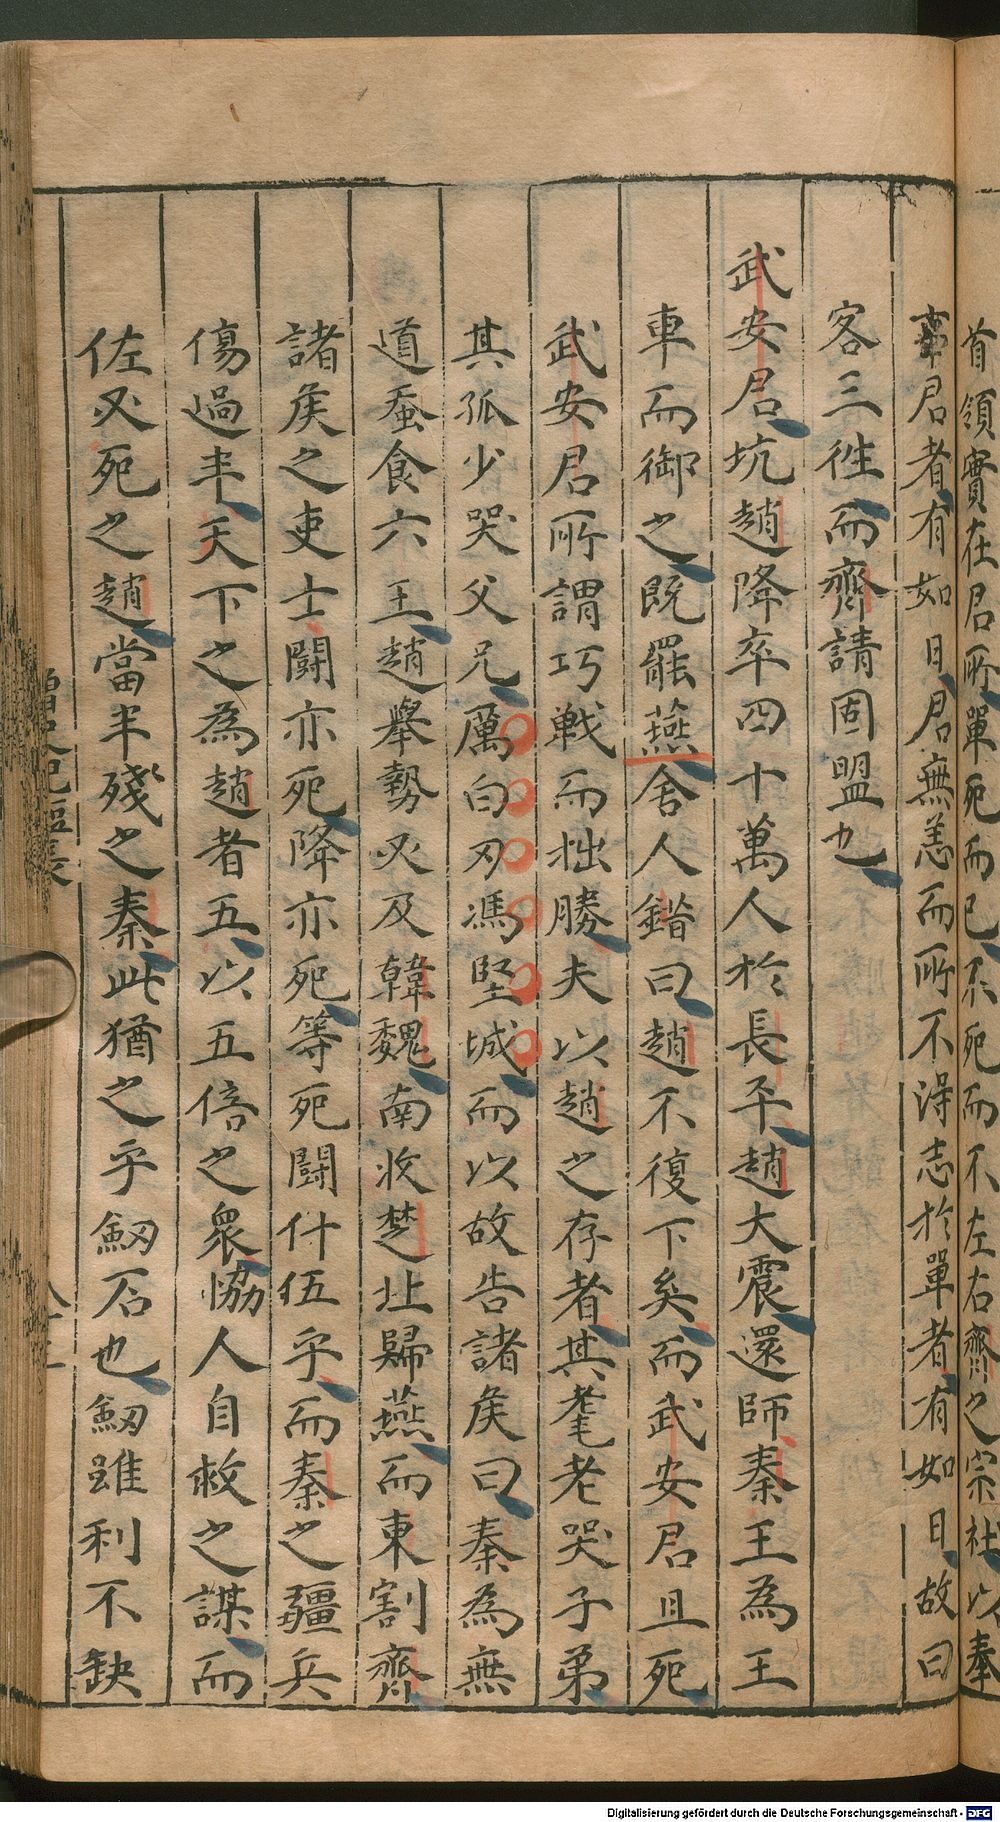 首領實在君所單死而已不死而不左右齊之宗社以奉
君者有如日君無恙而所不淂志於單者有如日故曰
客三徃而齊請固盟也
武安君坑趙降卒四十萬人於長平趙大震還師秦王為王
車而御之既罷燕舍人錯曰趙不復下矣而武安君且死
武安君所謂巧戦而拙勝夫以趙之存者其耄老哭子弟
其孤少哭父兄厲白刃馮堅城而以故告諸侯曰秦為無
道蚕食六王趙舉勢必及韓魏南收楚北歸燕而東割齊
諸侯之吏士闘亦死降亦死等死闘什伍乎而秦之疆兵
傷過半天下之為趙者五以五倍之衆恊人自救之謀而
佐必死之趙當半殘之秦此猶之乎劔石也劔雖利不缺
Digitalisierung gefördert durch die Deutsche Forschungsgemeinschaft - DFG